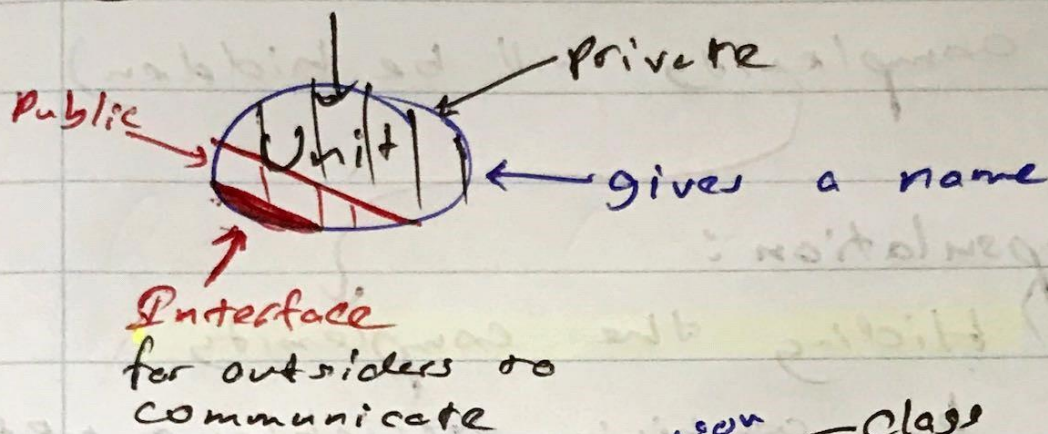 private
Public
Unit
gives a name
Interface
for outsiders to
communicate
son
Class